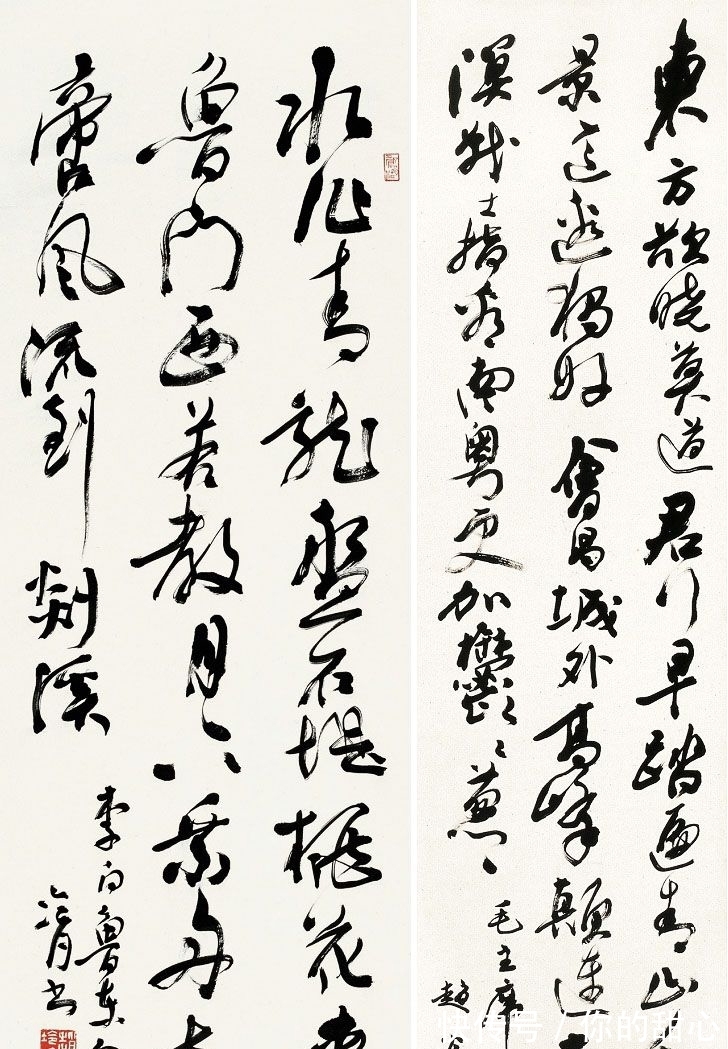 東方欲曉莫道君行早踏遍青山
景這邊獨好會昌城外高峰顛連
溟戰士指看南粵更加鬱鬱葱葱
毛主席
趙
水作青龍盤石堤桃花
魯門西若教月下乘舟
啻风流到剡溪
李白魯東
書
快传号 / 你的甜心